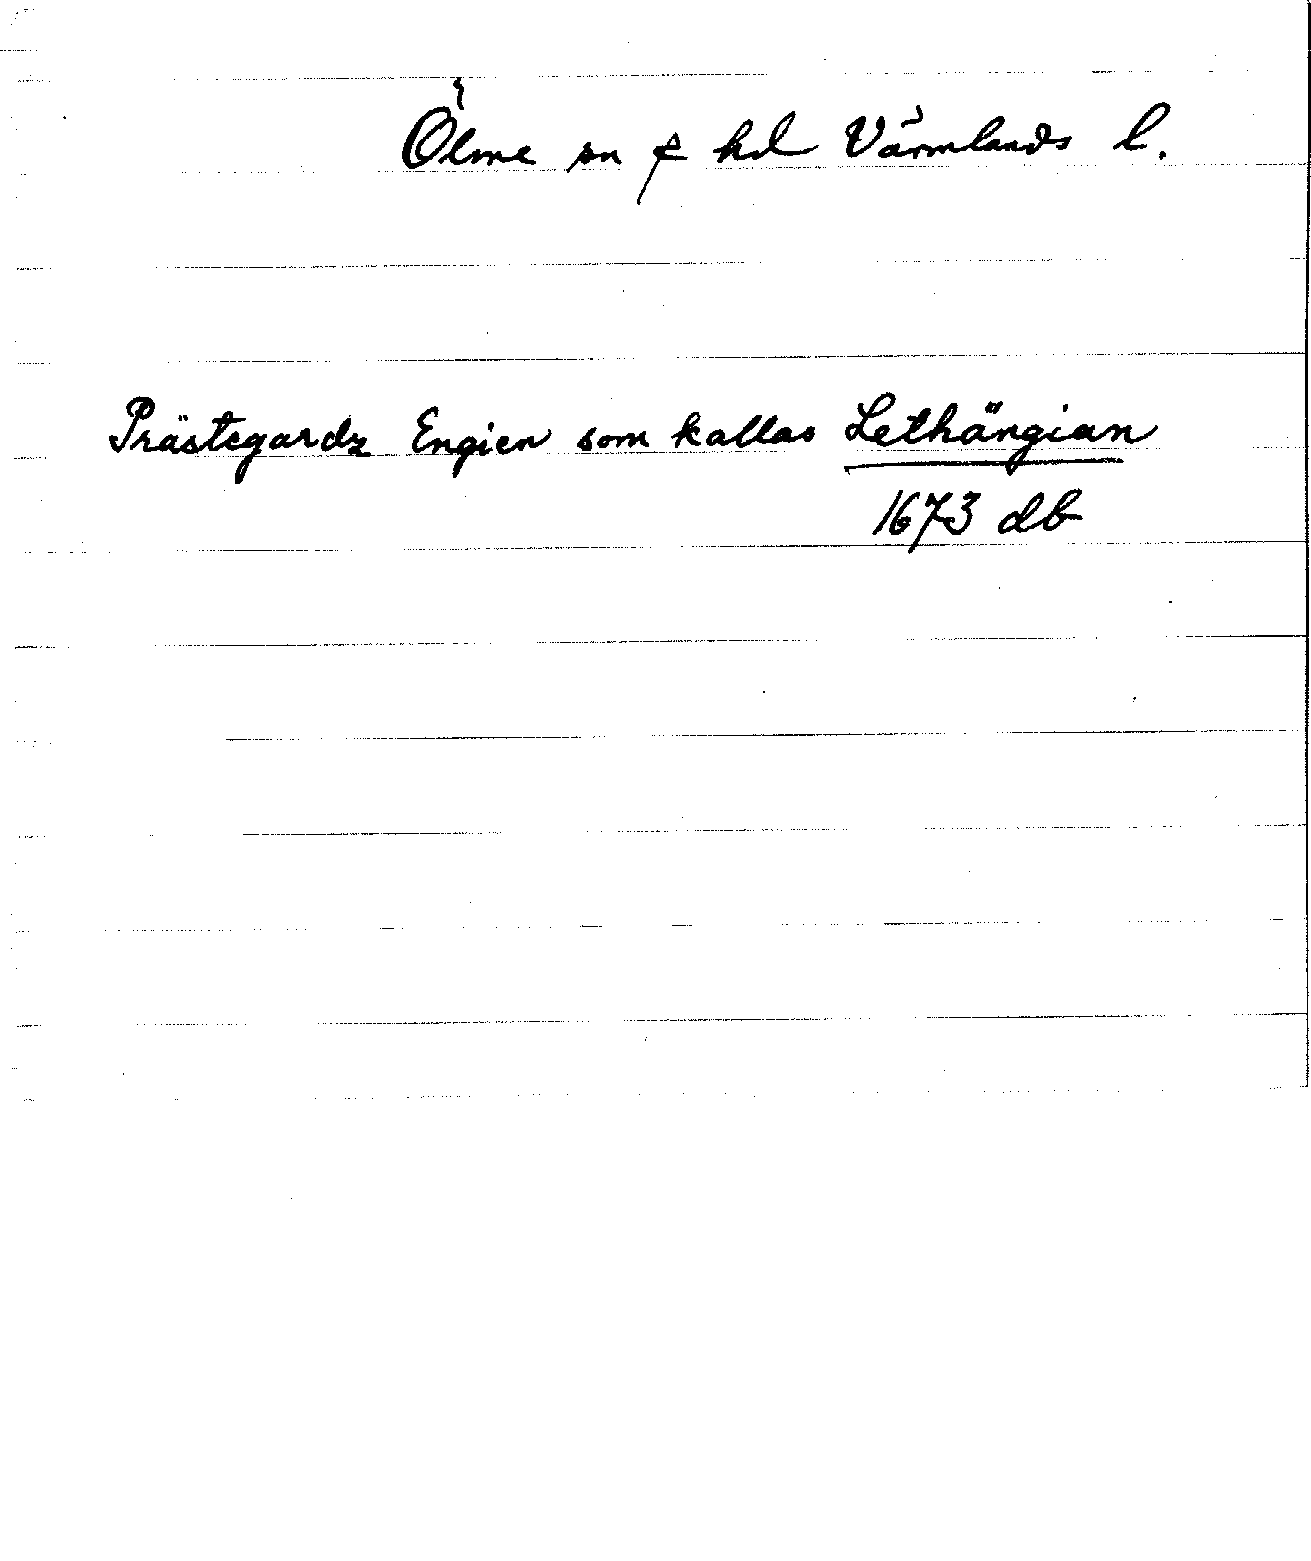 Ölme sn & hd Värmlands l.
Prästegardz Engien som kallas Lethängian
1673 db